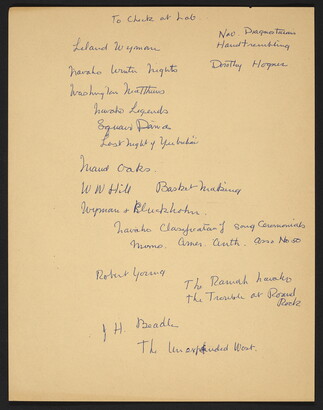 To Check at Lab.
Leland Wyman
Nav Diagnosticians
Handtrembling
Navaho Winter Nights
Dorothy Hogner
Washington Matthews
Navaho Legends
Squaw Dance
Last Night of Yeibichai
Maud Oaks.
W W Hill Basket Making
Wyman & Kluckhohn.
Navaho Classification of Song Ceremonials
Memo. Amer. Anth. Assn No 50
Robert Young
The Ramah Navaho
The Trouble at Round
Rock
J H. Beadle
The Undeveloped West.